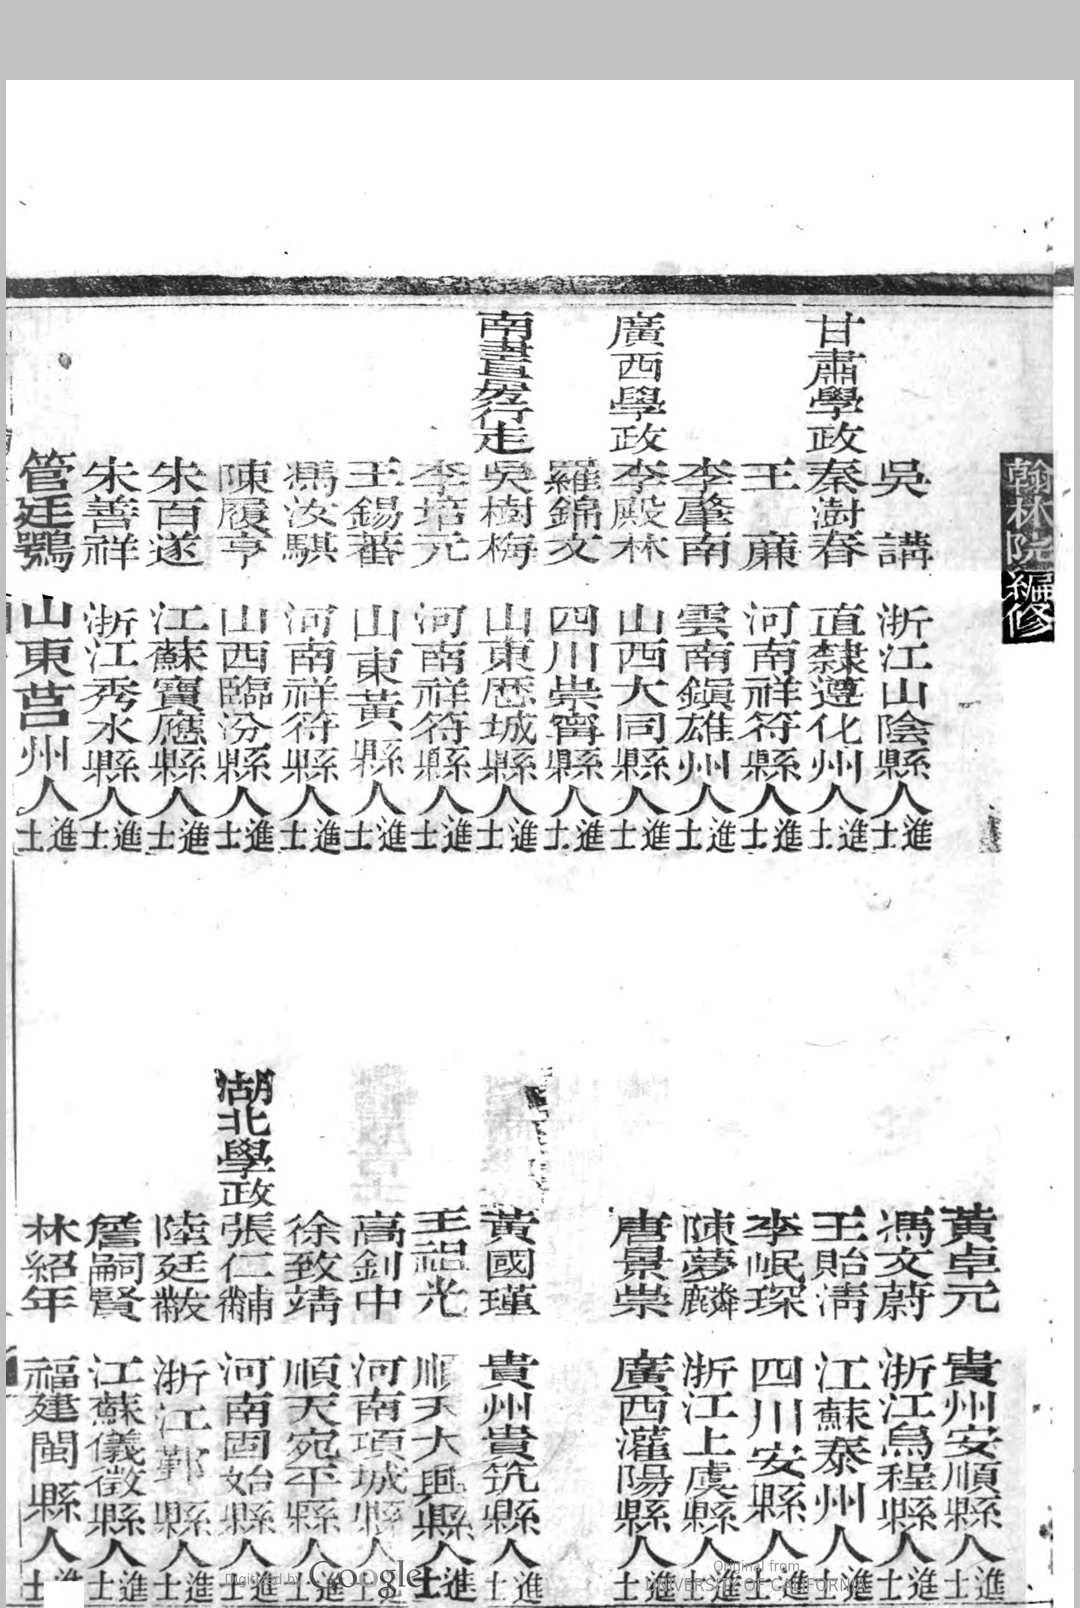 翰林院編修
吳講 浙江山陰縣人進士
甘肅學政 秦澍春 直隸遵化州人進士
王廉 河南祥符縣人進士
李肇南 雲南鎭雄州人進士
廣西學政 李殿林 山西大同縣人進士
羅錦文 四川崇甯縣人進士
南書房行走 吳樹梅 山東歷城縣人進士
李培元 河南祥符縣人進士
王錫蕃 山東黃縣人進士
馮汝騏 河南祥符縣人進士
陳履亨 山西臨汾縣人進士
朱百遂 江蘇寶應縣人進士
朱善祥 浙江秀水縣人進士
管廷鶚 山東莒州人進士
黃卓元 貴州安順縣人進士
馮文蔚 浙江烏程縣人進士
王貽清 江蘇泰州人進士
李岷琛 四川安縣人進士
陳夢麟 浙江上虞縣人進士
唐景崇 廣西灌陽縣人進士
黃國瑾 貴州貴筑縣人進士
王祖光 順天大興縣人進士
高釗中 河南項城縣人進士
徐致靖 順天宛平縣人進士
湖北學政 張仁黼 河南固始縣人進士
陸廷黻 浙江鄞縣人進士
詹嗣賢 江蘇儀徵縣人進士
林紹年 福建閩縣人進士
Digitized by Google
Original from
UNIVERSITY OF CALIFORNIA